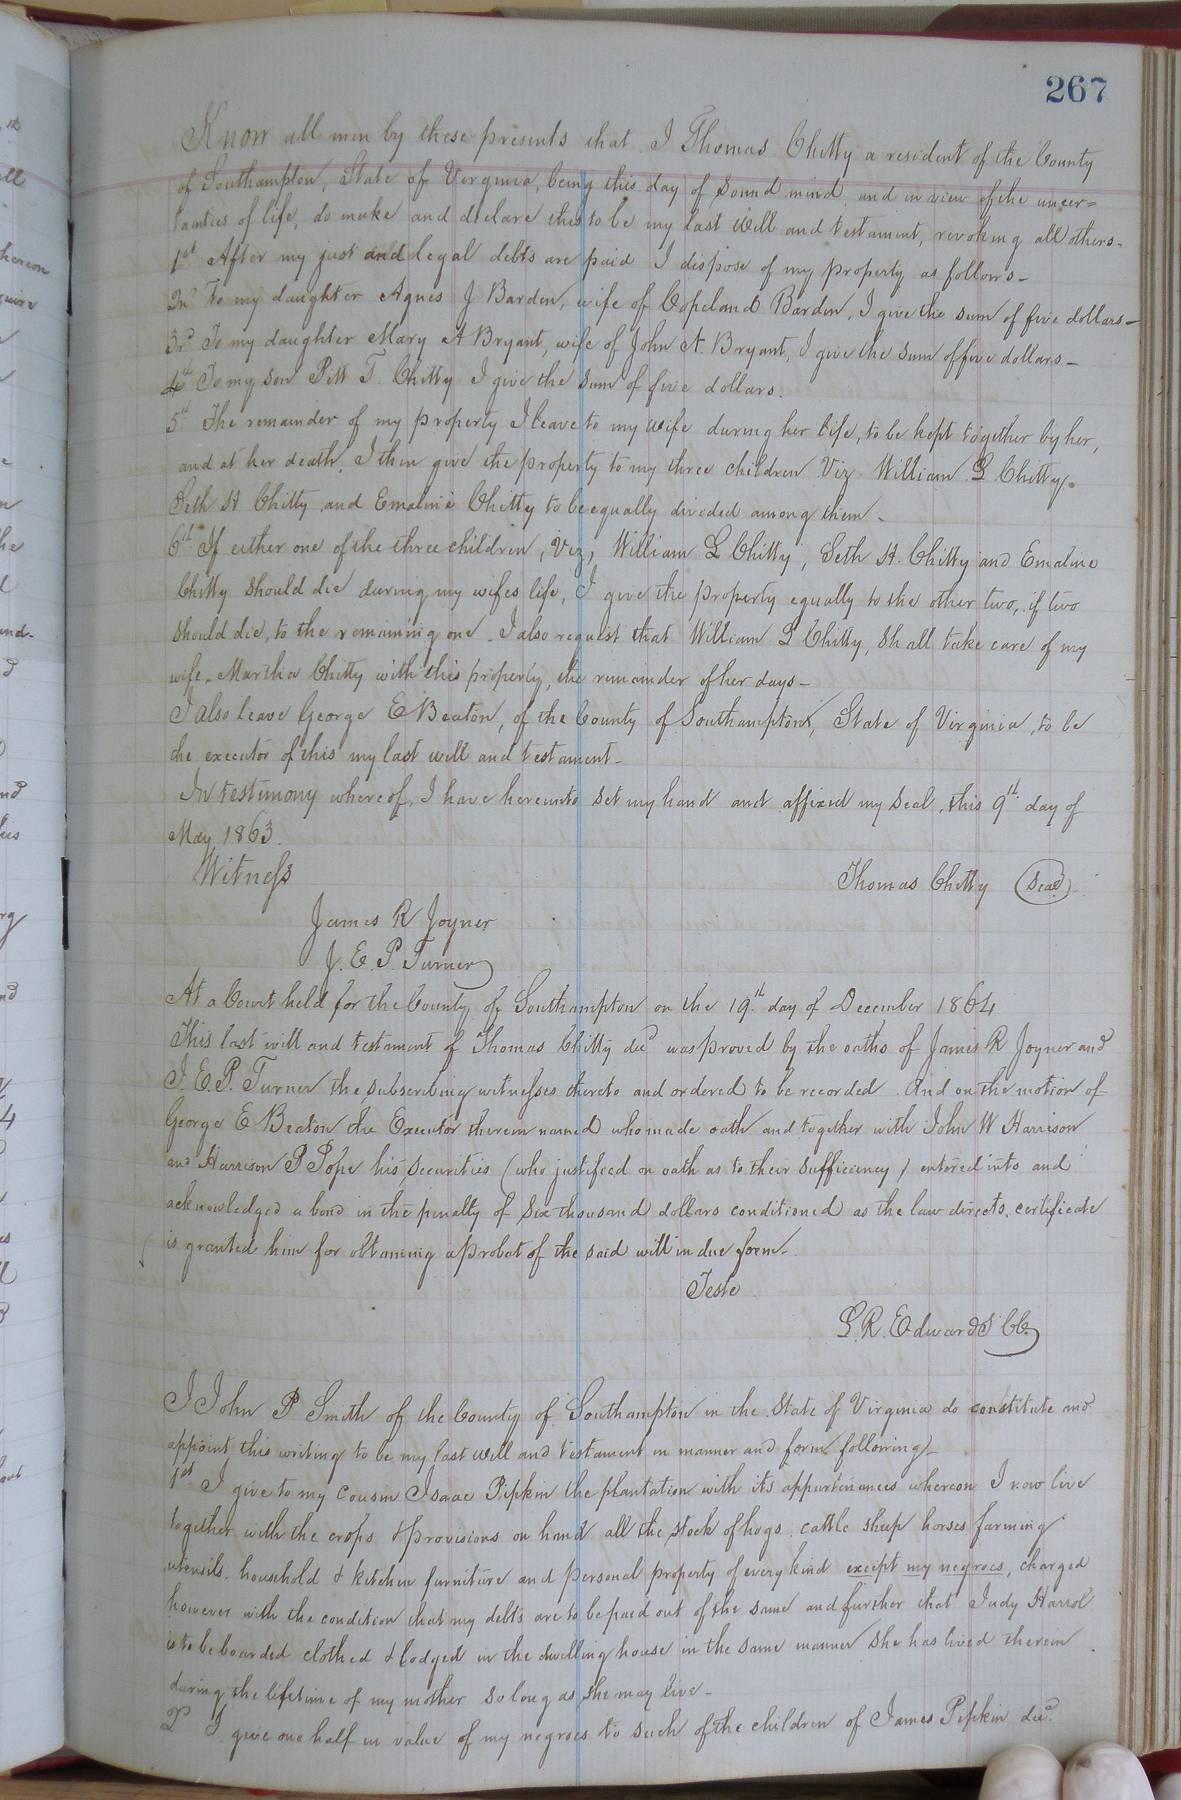 267
Know all men by these presents that I Thomas Chitty a resident of the County
of Southampton, State of Virginia, being this day of sound mind and in view of the uncer=
tainties of life, do make and declare this to be my last will and testament, revoking all others.
1st After my just and legal debts are paid I dispose of my property as follows-
2nd To my daughter Agnes J Barden, wife of Copeland Barden, I give the sum of five dollars-
3rd To my daughter Mary A Bryant, wife of John N. Bryant, I give the sum of five dollars-
4th To my son Pitt T. Chitty I give the sum of five dollars.
5th The remainder of my property I leave to my wife during her life, to be kept together by her,
and at her death, I then give the property to my three children Viz William L Chitty,
Seth H Chitty and Emaline Chitty to be equally divided among them-
6th If either one of the three children, Viz, William L Chitty, Seth H. Chitty and Emaline
Chitty should die during my wifes life, I give the property equally to the other two, if two
should die, to the remaining one. I also request that William L Chitty, shall take care of my
wife Martha Chitty with this property, the remainder of her days-
I also leave George E Beaton, of the County of Southampton, State of Virginia, to be
the executor of this my last will and testament-
In testimony whereof, I have hereunto set my hand and affixed my seal, this 9th day of
May 1863.
Witness Thomas Chitty (Seal)
James R Joyner
J. E. P. Turner
At a Court held for the County of Southampton on the 19th day of December 1864
This last will and testament of Thomas Chitty decd was proved by the oaths of James R Joyner and
J. E. P. Turner the subscribing witnesses thereto and ordered to be recorded And on the motion of
George E Beaton the Executor therein named who made oath and together with John W Harrison
and Harrison P Pope his securities (who justified on oath as to their sufficiency) entered into and
acknowledged a bond in the penalty of Six thousand dollars conditioned as the law directs, certificate
is granted him for obtaining a probat of the said will in due form-
Teste
L. R. Edwards CC.
I John P Smith of the County of Southampton in the State of Virginia do constitute and
appoint this writing to be my last will and testament in manner and form following-
1st I give to my cousin Isaac Pipkin the plantation with its appurtinances whereon I now live
together with the crops & provisions on hand all the stock of hogs cattle sheep horses farming
utensils household & kitchen furniture and personal property of every kind except my negroes, charged
however with the condition that my debts are to be paid out of the same and further that Judy Harrol
is to be boarded clothed & lodged in the dwelling house in the same manner she has lived therein
during the lifetime of my mother so long as she may live-
2d I give one half in value of my negroes to such of the children of James Pipkin decd